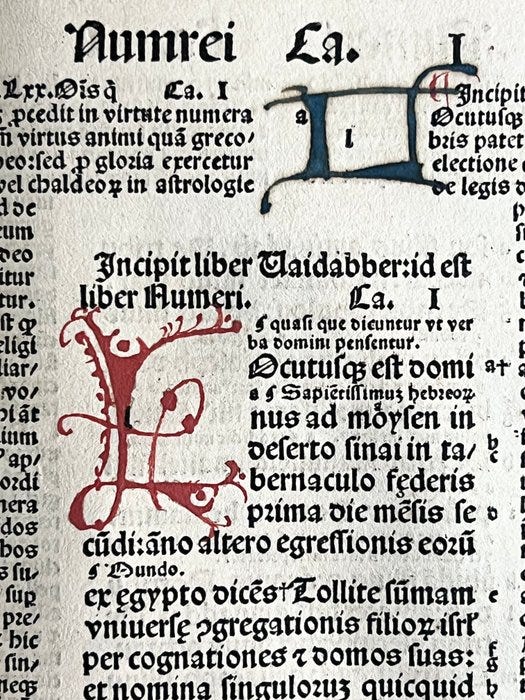 Numrei Ca. I
.Lxx.Oı̄s q̄ Ca. I
ꝓcedit in virtute numera
virtus animi quā greco/
sed ꝓ gloria exercetur
vel chaldeoꝝ in astrologie
d de
eum
deo
itur
tur.
st ꝙ
eligi
liar/
vo/
plāt
lium
ap/
ordi
nera
dos
bos
s su/
sup
pre/
hic
sin/
neqꝫ
a
i
Incipit
Ocutusqꝫ
bris patet
electione
de legis
Incipit liber Vaidabber:id est
liber Numeri. Ca. I
⸿ quasi que dicuntur vt ver
ba domini pensentur.
l
Ocutusqꝫ est domi a†
a ⸿ Sapiētissimuꝫ hebreoꝝ
nus ad moysen in
deserto sinai in ta/ b
c
bernaculo fęderis
prima die mēsis se d
cūdi:āno altero egressionis eorū
⸿ Mundo.
ex ęgypto dicēs†Tollite sūmam e
vniuersę ꝯgregationis filioꝝ isrł
per cognationes ⁊ domos suas: f
g
et nomina singuloruꝫ quicquid h